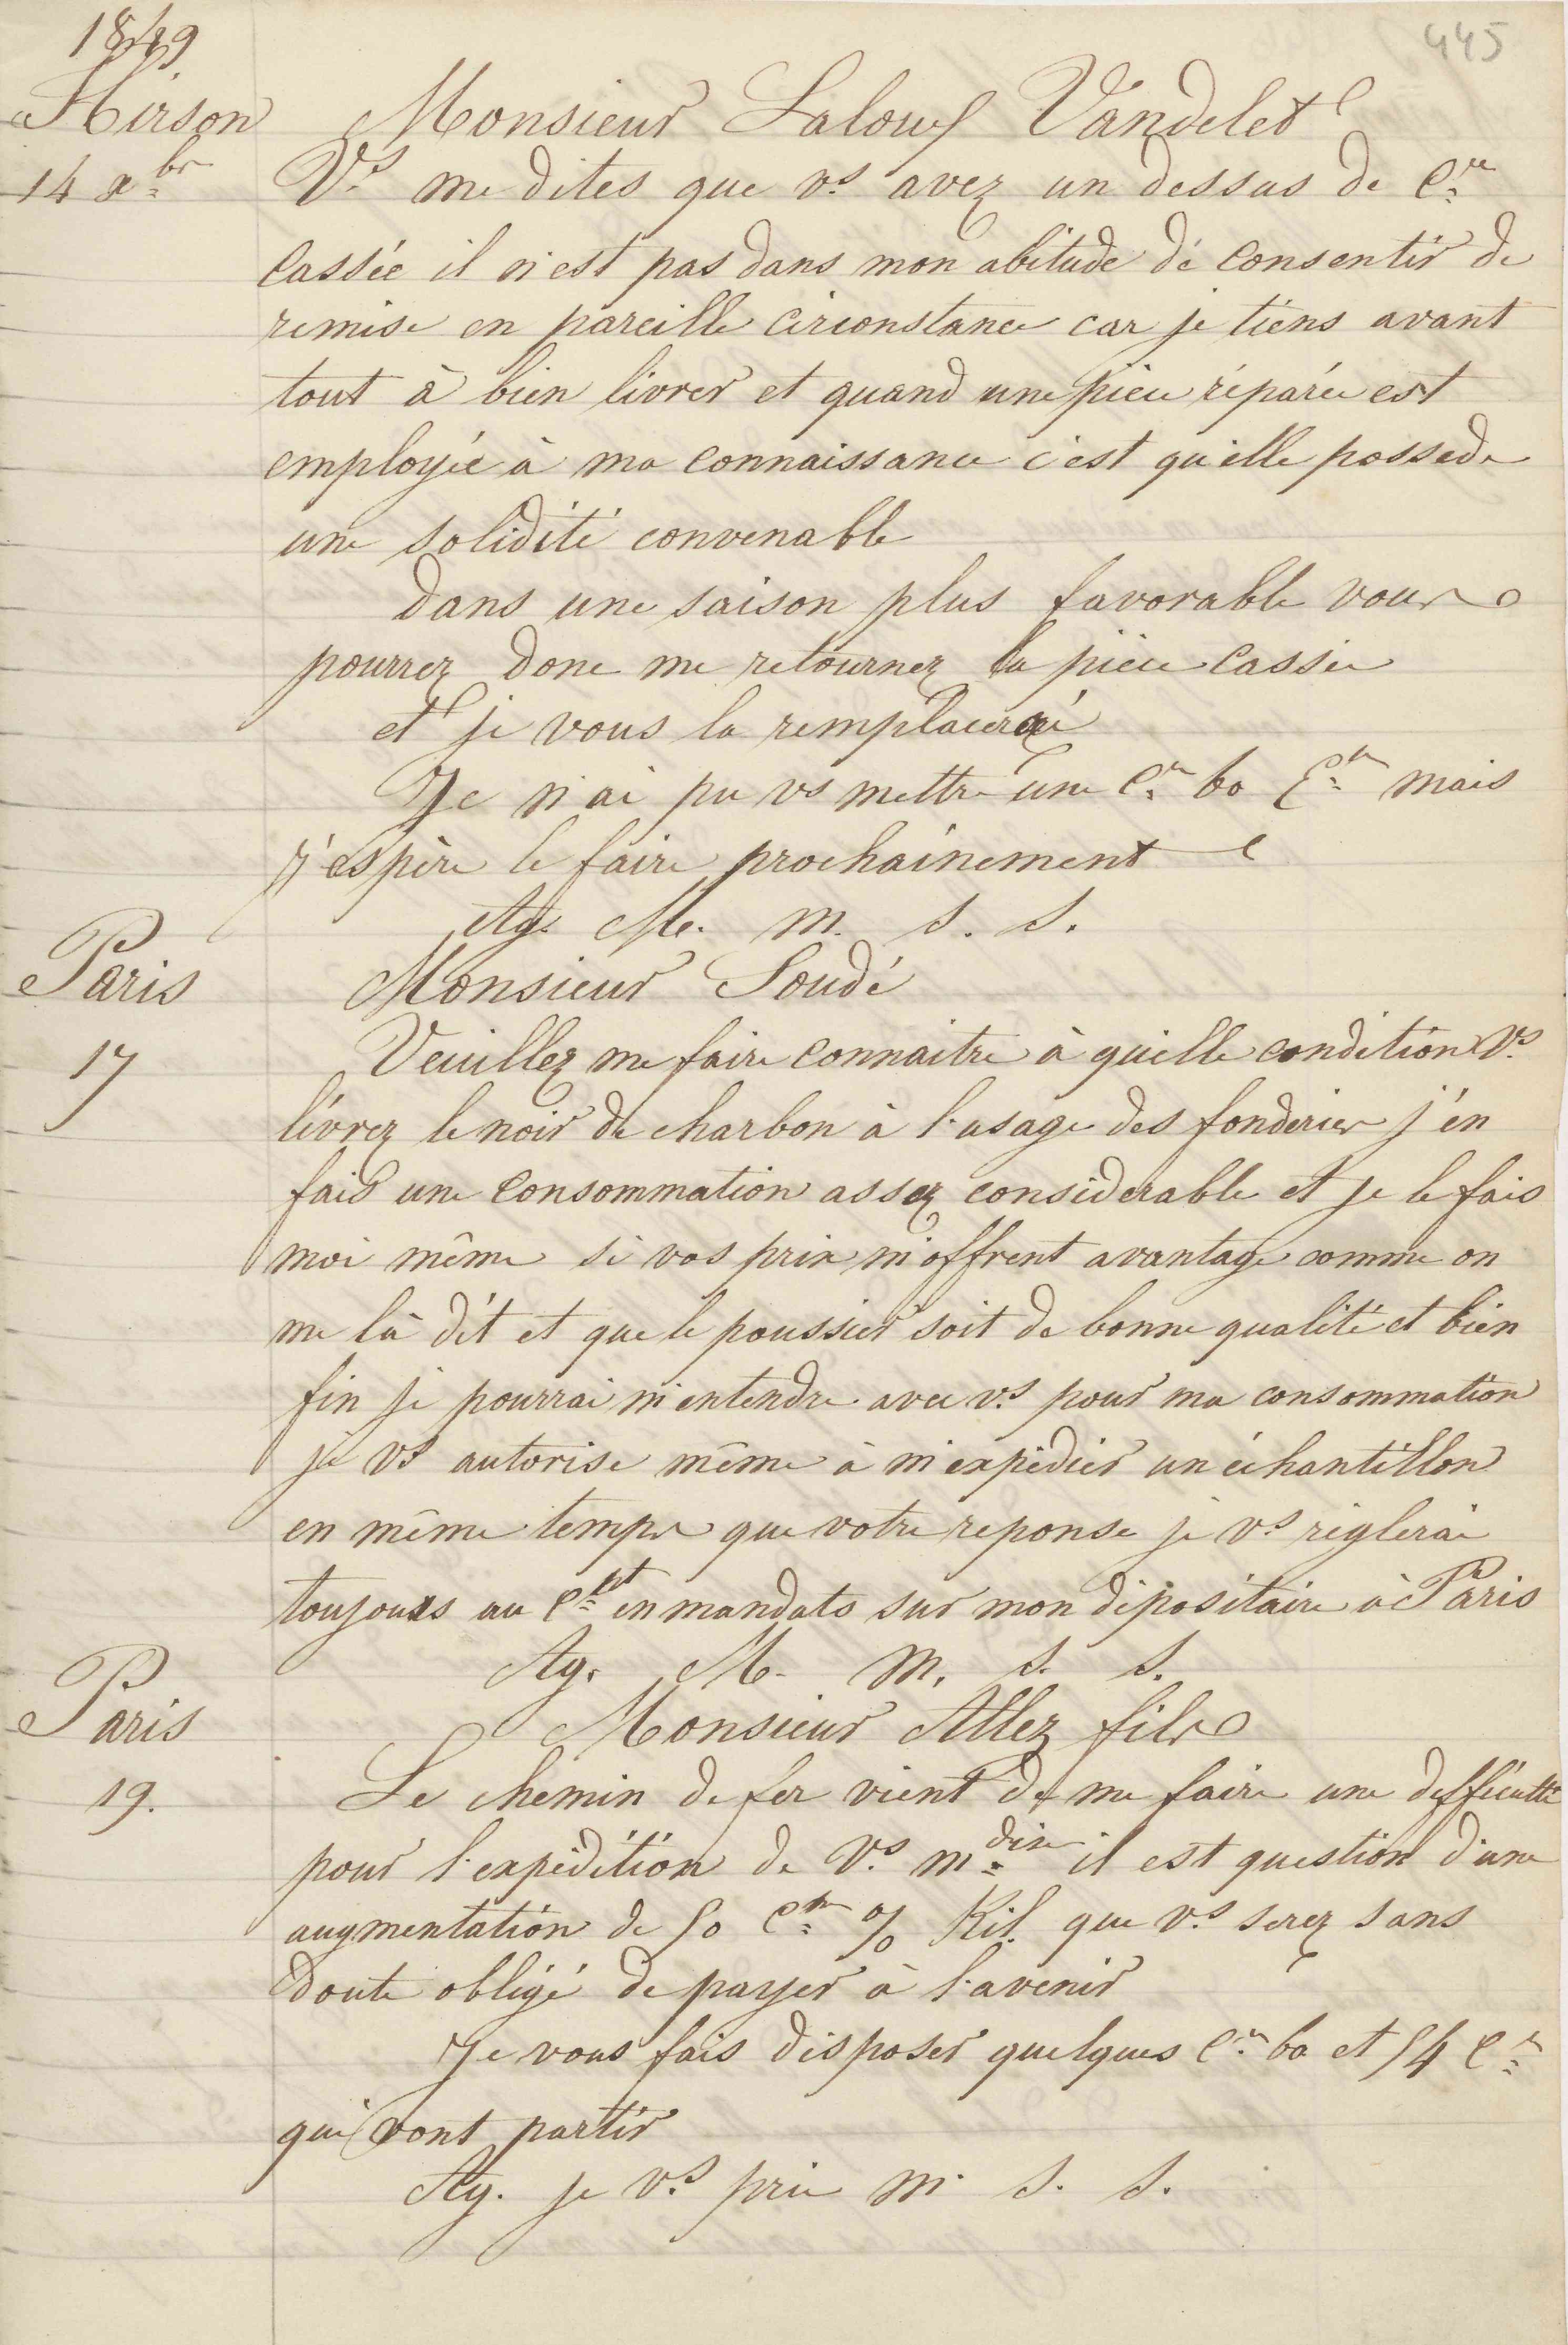 445
1849
Hirson
14 xbr
Monsieur Laloux Vandelet
Vs me dites que vs avez un dessus de Cre
cassée il n'est pas dans mon abitude dé consentir de
remise en pareille circonstance car je tiens avant
tout à bien livrer et quand une pièce réparée est
employée à ma connaissance c'est qu'elle possede
une solidité convenable
dans une saison plus favorable vous
pourrez donc me retournez la pièce cassée
et je vous la remplacerai
Je n'ai pu vs mettre une Cre bo mais
j'espère le faire prochainement
Ag. Me. m. s. s.
Paris
Monsieur Soudé
17
Veuillez me faire connaitre à quelle condition Vs
livrez le noir de charbon à l'usage des fonderies j'en
fais une consommation assez considerable et je le fais
moi même si vos prix m'offrent avantage comme on
me là dit et que le poussier soit de bonne qualité et bien
fin je pourrai m'entendre avec vs pour ma consommation
je vs autorise même à m'expédier un échantillon
en même temps que votre reponse je vs réglerai
toujours au Cpt en mandats sur mon dépositaire à Paris
Ag. M. m. s. s.
Paris
Monsieur Allez fils
19.
Le chemin de fer vient de me faire une difficulté
pour l'expédition de Vs mdise il est question d'une
augmentation de 50 Cme % Kil. que vs serez sans
doute obligé de payer à l'avenir
Je vous fais disposer quelques Cre bo et 54 Cre
qui vont partir
Ag. je vs prie m. s. s.